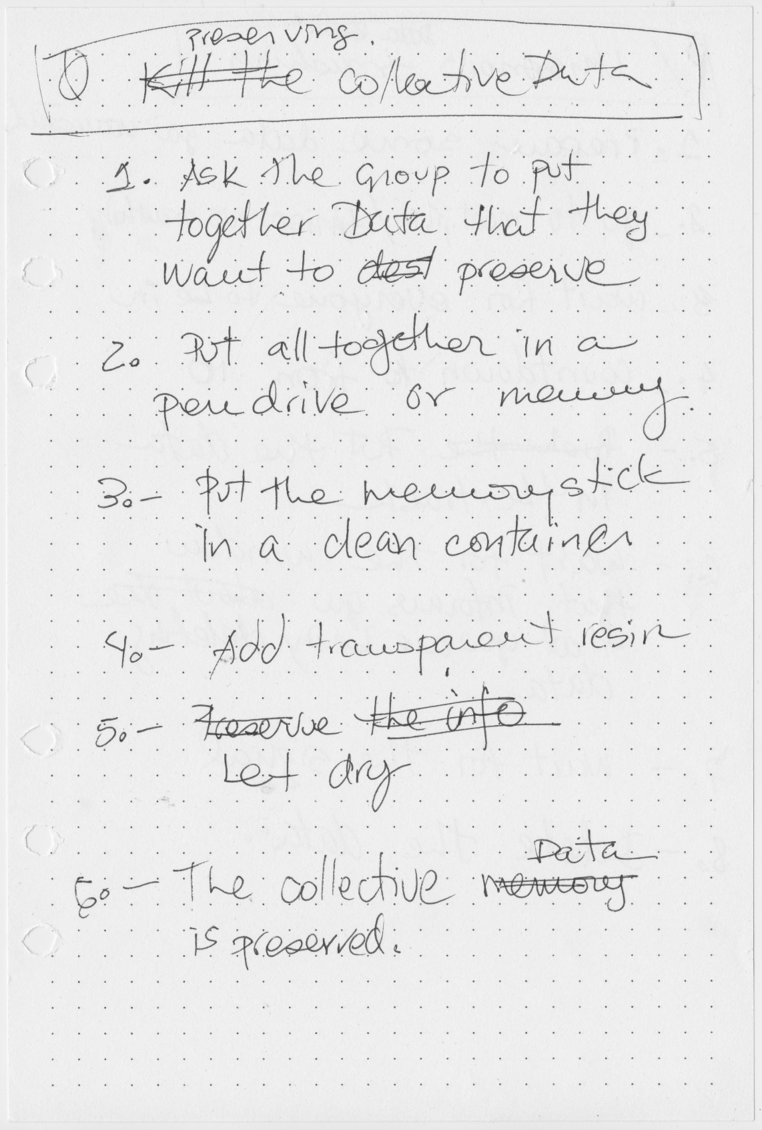 preserving.
Kill the collective Data
1. Ask the Group to put
together Data that they
want to dest preserve
2. Put all together in a
pendrive or memory.
3.- Put the memory stick
in a clean container
4.- Add transparent resin
5.- Preserve the info
Let dry
Data
6.- The collective memory
is preserved.